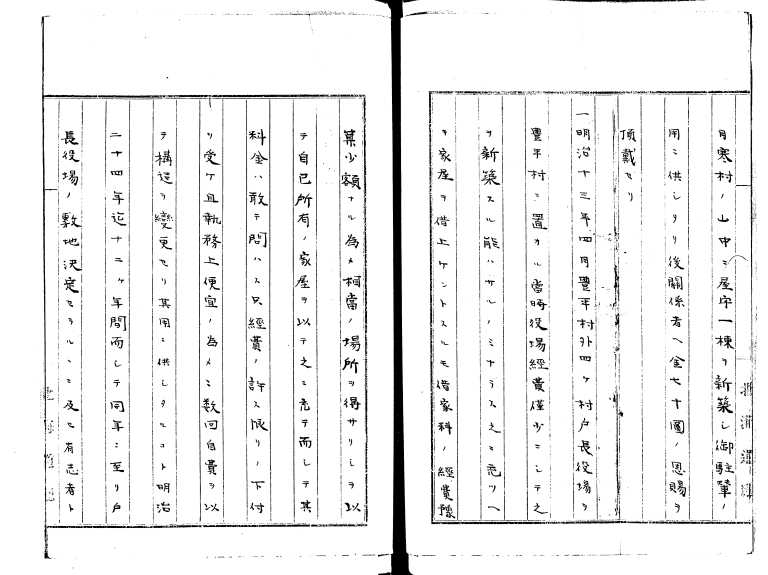 月寒村ノ山中ニ屋宇一棟ヲ新築シ御駐輦ノ
用ニ供シタリ後關係者ヘ金七十圓ノ恩賜ヲ
頂戴セリ
一明治十三年四月豊平村外四ケ村戸長役場ヲ
豊平村ニ置カル當時役場經費僅少ニシテ之
ヲ新築スル能ハサルノミナラス之ニ充ツヘ
キ家屋ヲ借上ケントスルモ借家料ノ經費豫
算少額ナル為メ相當ノ場所ヲ得サリシヲ以
テ自己所有ノ家屋ヲ以テ之ニ充テ而シテ其
料金ハ敢テ問ハス只經費ノ許ス限リノ下付
ヲ受ケ且執務上便宜ノ為メニ数回自費ヲ以
テ構造ヲ變更セリ其用ニ供シタルコト明治
二十四年迄十二ヶ年間而シテ同年ニ至リ戸
長役場ノ敷地決定セラルヽニ及ヒ有志者ト